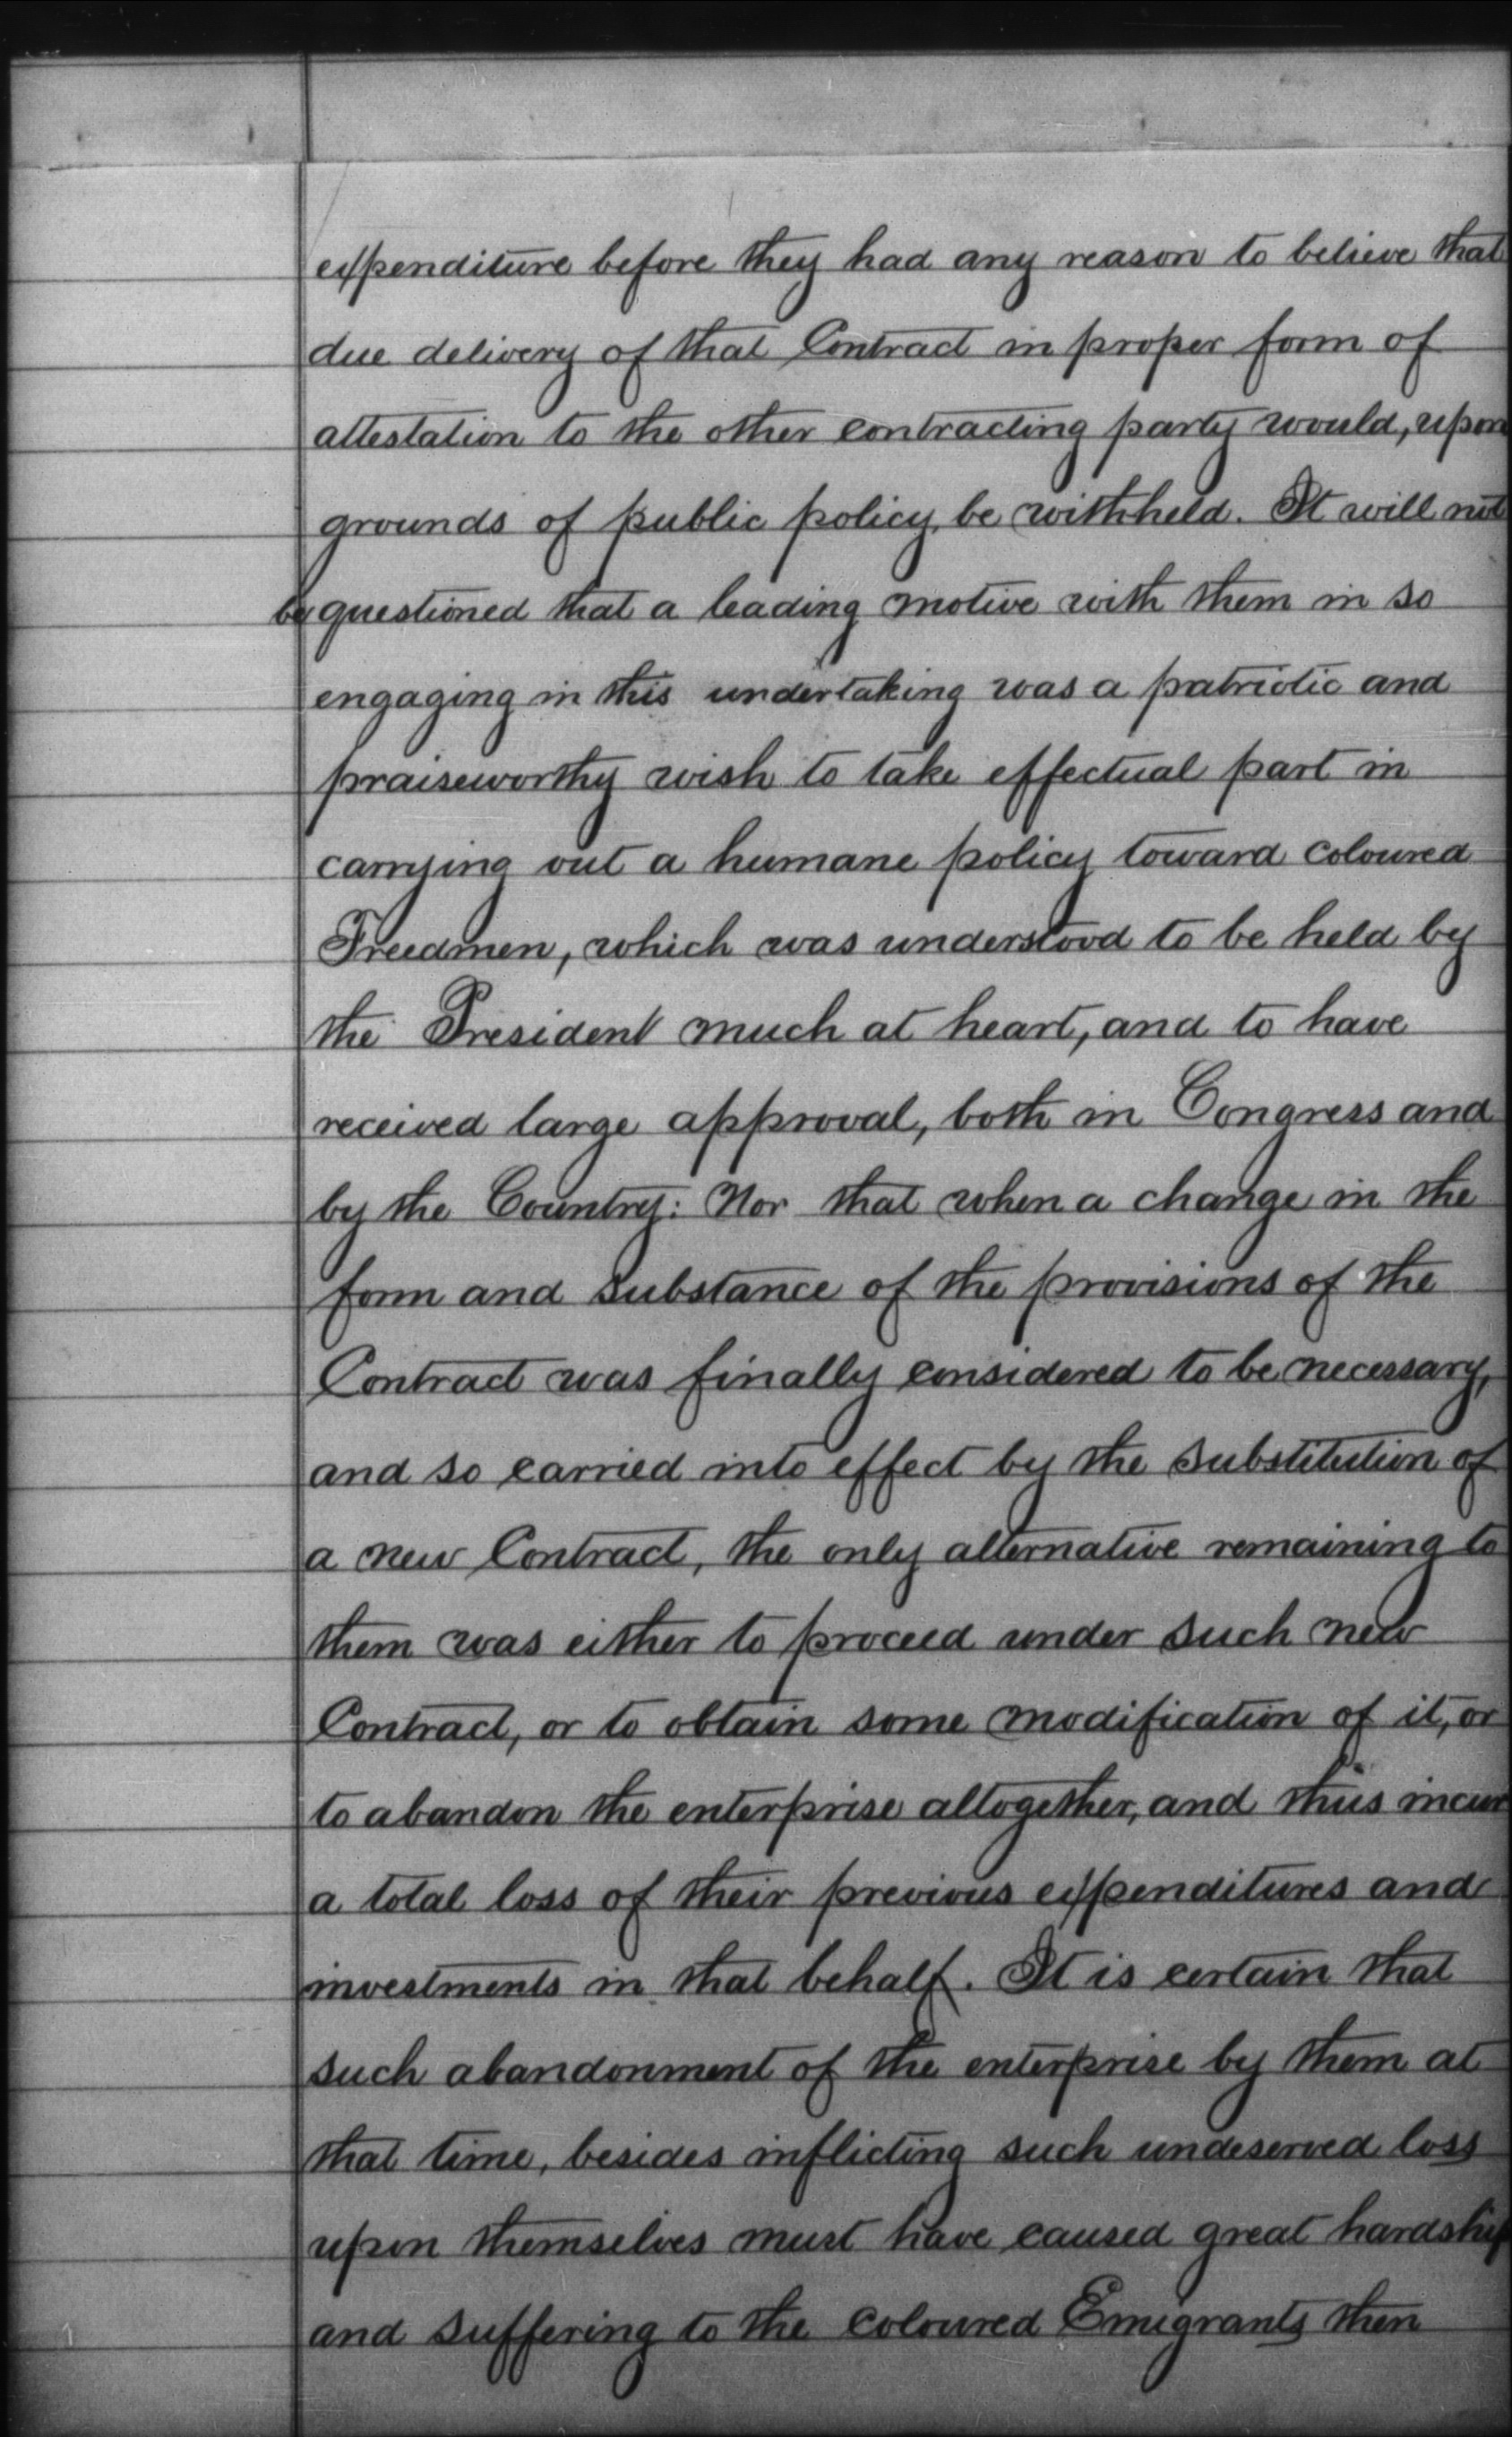 expenditure before they had any reason to believe that
due delivery of that Contract in proper form of
attestation to the other contracting party would, upon
grounds of public policy, be withheld. It will not
be questioned that a leading motive with them in so
engaging in this undertaking was a patriotic and
praiseworthy wish to take effectual part in
carrying out a humane policy toward coloured
Freedmen, which was understood to be held by
the President much at heart, and to have
received large approval, both in Congress and
by the Country: Nor that when a change in the
form and substance of the provisions of the
Contract was finally considered to be necessary,
and so carried into effect by the substitution of
a new Contract, the only alternative remaining to
them was either to proceed under such new
Contract, or to obtain some modification of it, or
to abandon the enterprise altogether, and thus incur
a total loss of their previous expenditures and
investments in that behalf. It is certain that
such abandonment of the enterprise by them at
that time, besides inflicting such undeserved loss
upon themselves must have caused great hardship
and suffering to the coloured Emigrants then